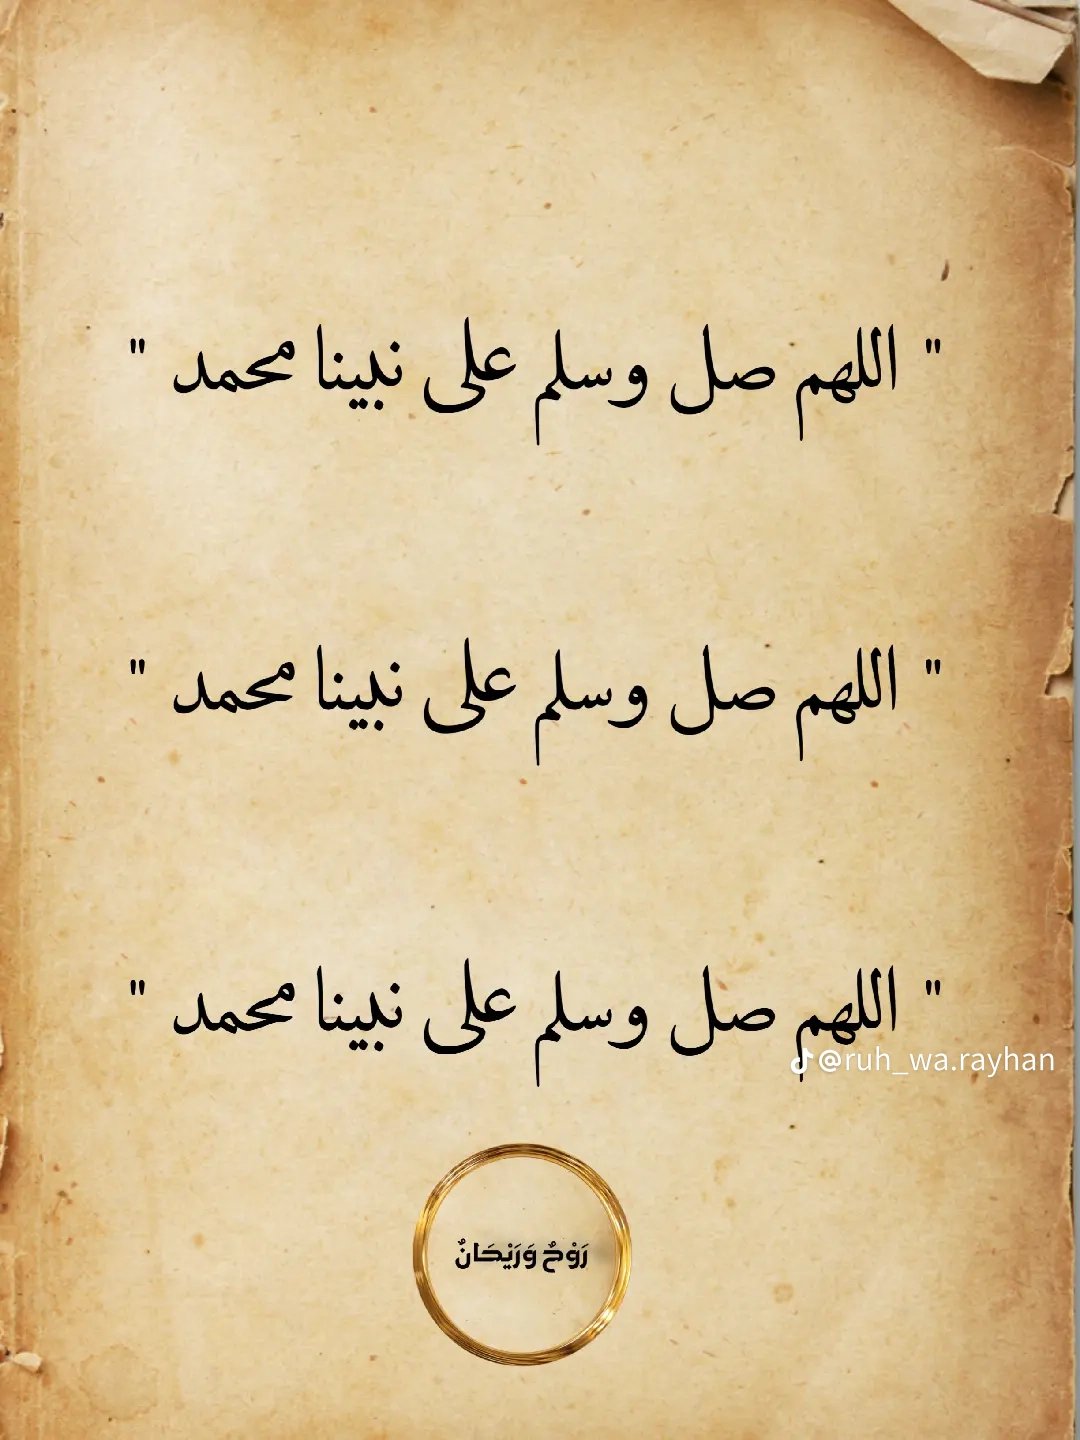 " اللهم صل وسلم على نبينا محمد "
" اللهم صل وسلم على نبينا محمد "
" اللهم صل وسلم على نبينا محمد "
@ruh_wa.rayhan
رَوْحٌ وَرَيْحَانٌ